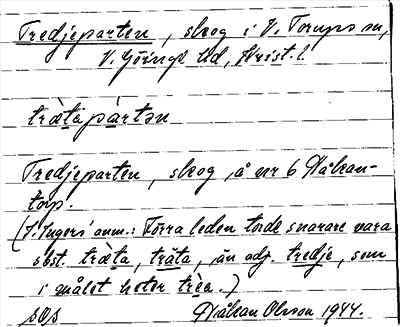 Tredjeparten, skog i V. Torups sn,
V. Göinge hd, Krist. l.
træ̀ta pàrtən
Tredjeparten, skog, å nr 6 Håkan-
torp.
(I. Ingers' anm.: Förra leden torde snarare vara
sbst. træta, träta, än adj. tredje, som
i målet heter trèa.)
Håkan Olsson 1944.